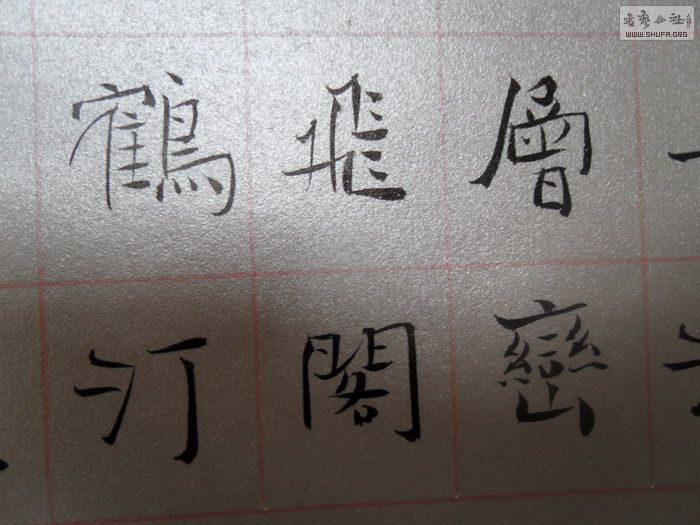 層巒
飛閣
鶴汀
書藝公社
WWW.SHUFA.ORG